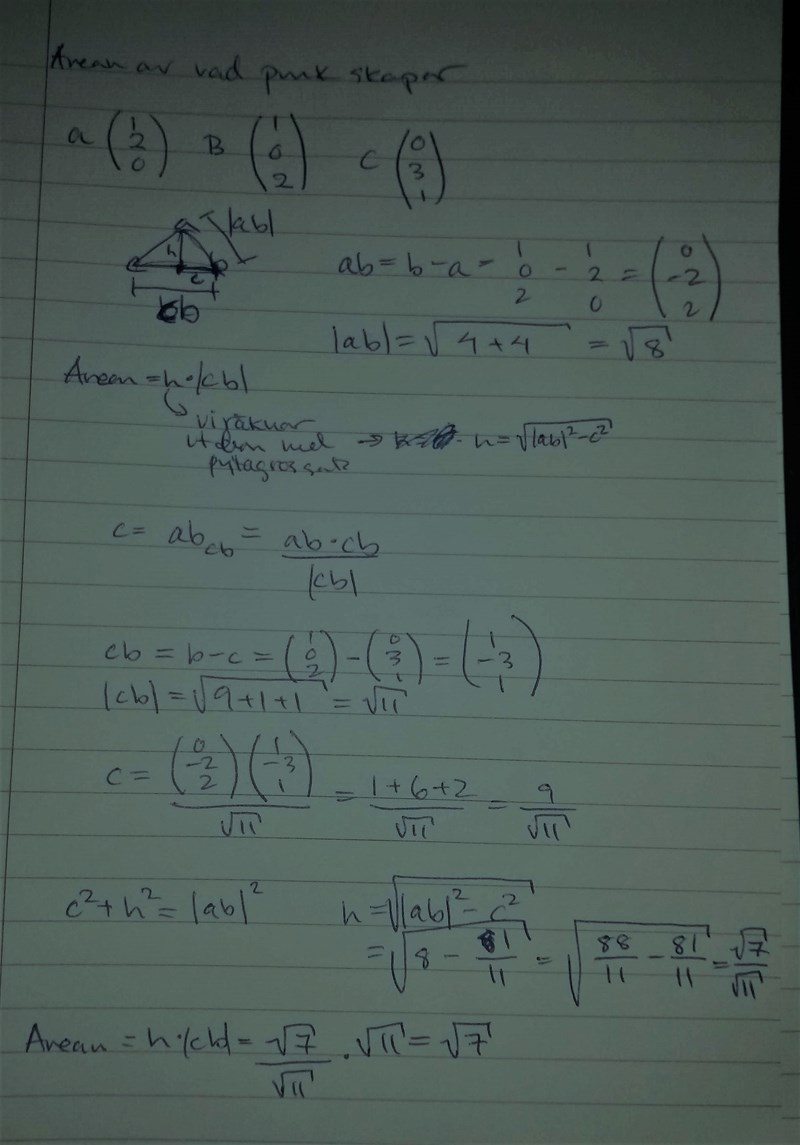 Arean av vad punk skapar
a (1 2 0) B (1 0 2) C (0 3 1)
a |ab|
h
c b
c
cb
ab = b - a = 1 0 2 - 1 2 0 = (0 -2 2)
|ab| = √4+4 = √8
Arean = h·|cb|
vi räknar
ut den med → h = √|ab|²-c²
pytagros sats
c = ab_cb = ab·cb / |cb|
cb = b - c = (1 0 2) - (0 3 1) = (1 -3 1)
|cb| = √9+1+1 = √11
c = (0 -2 2)(1 -3 1) / √11 = 1+6+2 / √11 = 9 / √11
c² + h² = |ab|² h = √|ab|² - c²
= √8 - 81/11 = √88/11 - 81/11 = √7/√11
Arean = h·|cb| = √7/√11 · √11 = √7